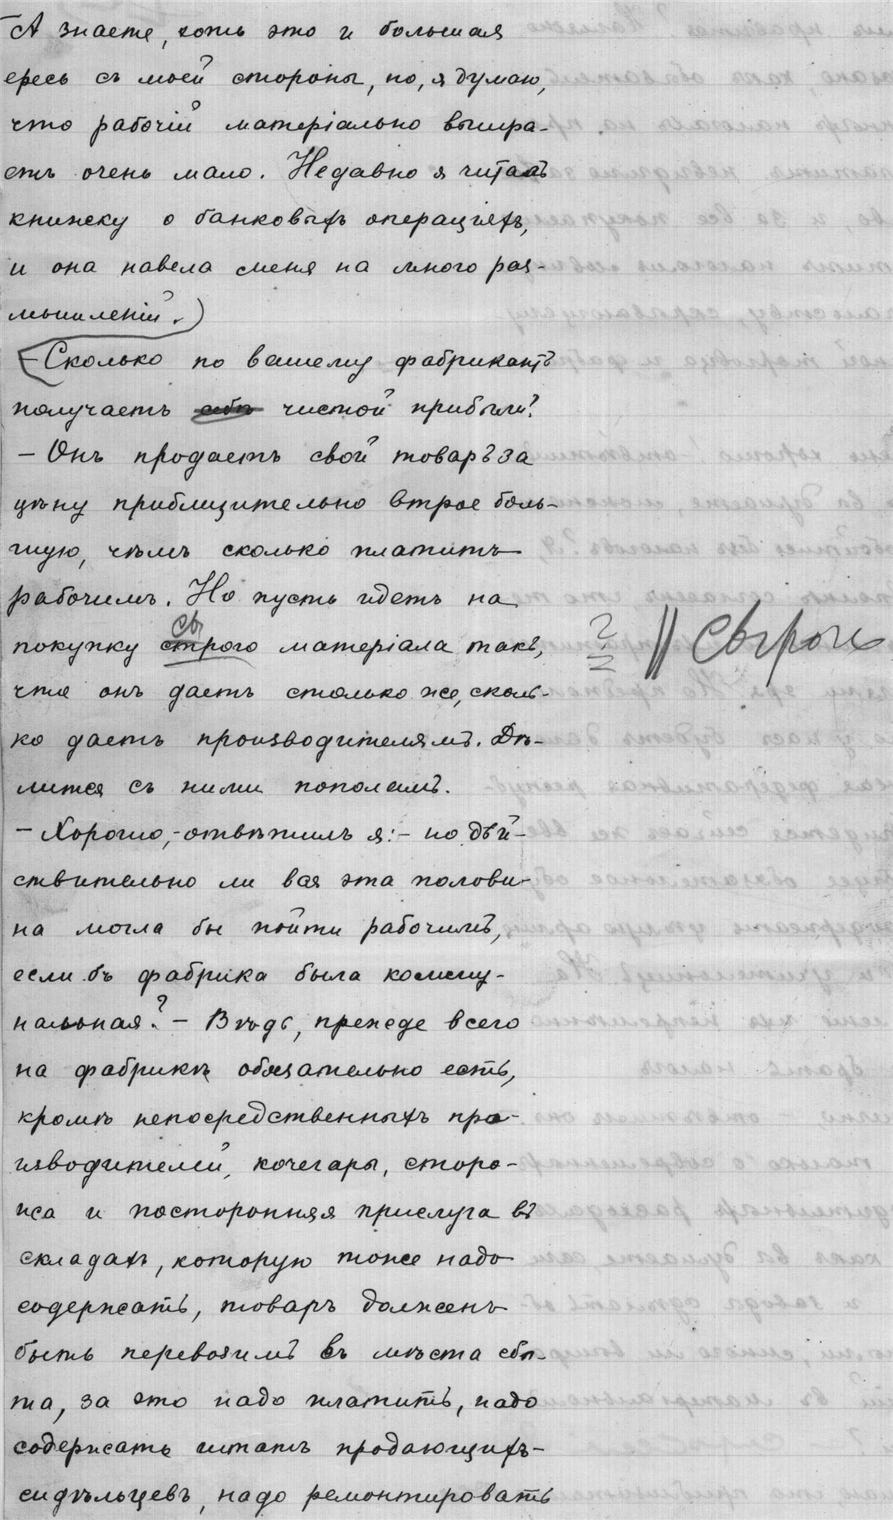 А знаете, хоть это и большая
ересь съ моей стороны, но, я думаю,
что рабочій матеріально выигра-
етъ очень мало. Недавно я читалъ
книжку о банковыхъ операціяхъ,
и она навела меня на много раз-
мышленій.)
– Сколько по вашему фабрикантъ
получаетъ себѣ чистой прибыли?
– Онъ продаетъ свой товаръ за
цѣну приблизительно втрое боль-
шую, чѣмъ сколько платитъ
рабочимъ. Но пусть идетъ на
покупку строго матеріала такъ,
сы
? || сырого
что онъ даетъ столько же, сколь-
ко даетъ производителямъ. Дѣ-
лится съ ними пополамъ.
– Хорошо, – отвѣтилъ я: – но дѣй-
ствительно ли вся эта полови-
на могла бы пойти рабочимъ,
если бъ фабрика была комму-
нальная? – Вѣдь, прежде всего
на фабрикѣ обязательно есть,
кромѣ непосредственныхъ про-
изводителей, кочегары, сторо-
жа и посторонняя прислуга въ
складахъ, которую тоже надо
содержать, товаръ долженъ
быть перевозимъ въ мѣста сбы-
та, за это надо платить, надо
содержать штатъ продающихъ-
сидѣльцевъ, надо ремонтировать